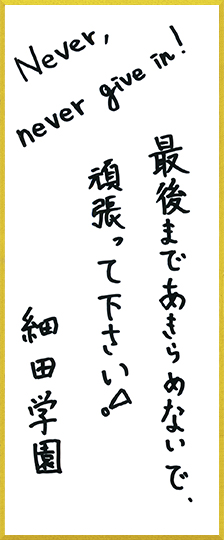 Never,
never give in!
最後まであきらめないで、
頑張って下さい!。
細田学園